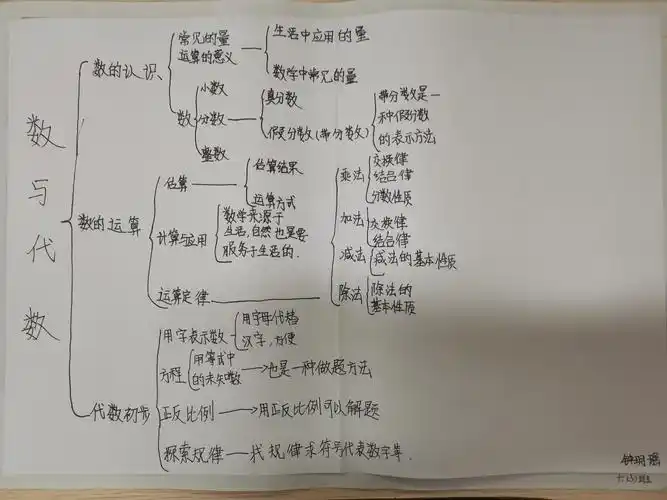 数与代数
数的认识
常见的量
运算的意义
生活中应用的量
数学中常见的量
数
小数
分数
整数
真分数
假分数(带分数)
带分数是一
种假分数
的表示方法
数的运算
估算
估算结果
运算方式
计算与应用
数学来源于
生活,自然也要
服务于生活的.
运算定律
乘法
交换律
结合律
分数性质
加法
交换律
结合律
减法
减法的基本性质
除法
除法的
基本性质
代数初步
用字表示数
用字母代替
汉字,方便
方程
用等式中
的未知数
也是一种做题方法
正反比例
用正反比例可以解题
探索规律
找规律求符号代表数字等.